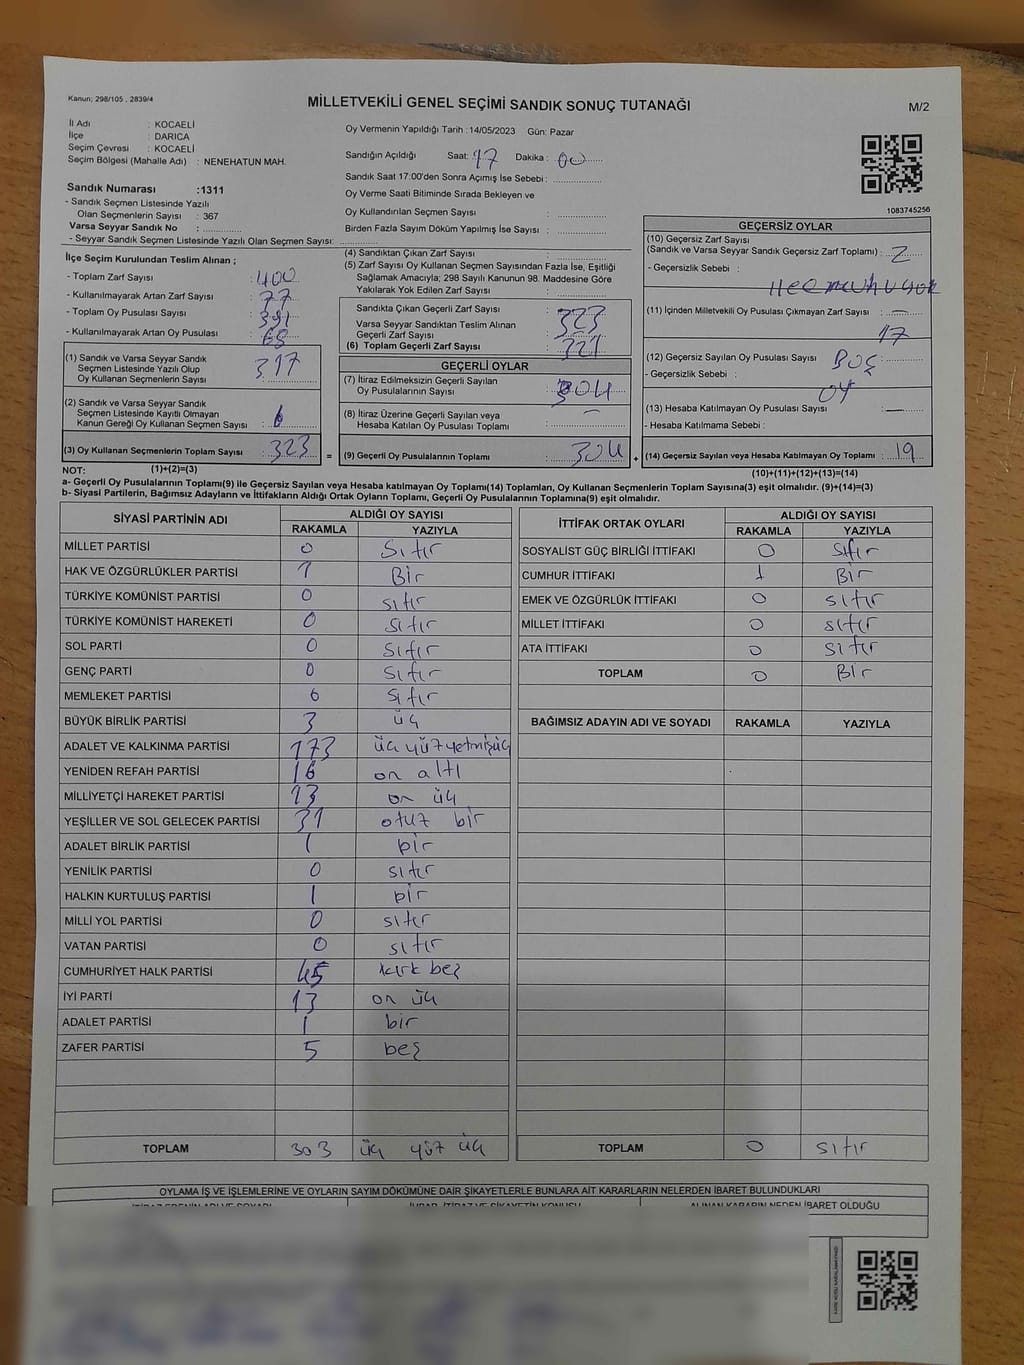 Kanun; 298/105 , 2839/4
MİLLETVEKİLİ GENEL SEÇİMİ SANDIK SONUÇ TUTANAĞI
M/2
İl Adı : KOCAELİ
İlçe : DARICA
Seçim Çevresi : KOCAELİ
Seçim Bölgesi (Mahalle Adı) : NENEHATUN MAH.
Sandık Numarası :1311
- Sandık Seçmen Listesinde Yazılı
Olan Seçmenlerin Sayısı : 367
Varsa Seyyar Sandık No :
- Seyyar Sandık Seçmen Listesinde Yazılı Olan Seçmen Sayısı:
Oy Vermenin Yapıldığı Tarih :14/05/2023 Gün: Pazar
Sandığın Açıldığı Saat: 17 Dakika : 00
Sandık Saat 17:00'den Sonra Açımış İse Sebebi :
Oy Verme Saati Bitiminde Sırada Bekleyen ve
Oy Kullandırılan Seçmen Sayısı :
Birden Fazla Sayım Döküm Yapılmış İse Sayısı :
1083745256
İlçe Seçim Kurulundan Teslim Alınan ;
- Toplam Zarf Sayısı : 400
- Kullanılmayarak Artan Zarf Sayısı : 77
- Toplam Oy Pusulası Sayısı : 391
- Kullanılmayarak Artan Oy Pusulası : 68
(1) Sandık ve Varsa Seyyar Sandık
Seçmen Listesinde Yazılı Olup
Oy Kullanan Seçmenlerin Sayısı : 317
(2) Sandık ve Varsa Seyyar Sandık
Seçmen Listesinde Kayıtlı Olmayan
Kanun Gereği Oy Kullanan Seçmen Sayısı : 6
(3) Oy Kullanan Seçmenlerin Toplam Sayısı : 323 =
(4) Sandıktan Çıkan Zarf Sayısı :
(5) Zarf Sayısı Oy Kullanan Seçmen Sayısından Fazla İse, Eşitliği
Sağlamak Amacıyla; 298 Sayılı Kanunun 98. Maddesine Göre
Yakılarak Yok Edilen Zarf Sayısı :
Sandıkta Çıkan Geçerli Zarf Sayısı : 323
Varsa Seyyar Sandıktan Teslim Alınan
Geçerli Zarf Sayısı :
(6) Toplam Geçerli Zarf Sayısı : 321
GEÇERLİ OYLAR
(7) İtiraz Edilmeksizin Geçerli Sayılan
Oy Pusulalarının Sayısı : 304
(8) İtiraz Üzerine Geçerli Sayılan veya
Hesaba Katılan Oy Pusulası Toplamı : –
(9) Geçerli Oy Pusulalarının Toplamı : 304 +
GEÇERSİZ OYLAR
(10) Geçersiz Zarf Sayısı
(Sandık ve Varsa Seyyar Sandık Geçersiz Zarf Toplamı) : 2
- Geçersizlik Sebebi :
(11) İçinden Milletvekili Oy Pusulası Çıkmayan Zarf Sayısı : –
17
(12) Geçersiz Sayılan Oy Pusulası Sayısı : BOŞ
- Geçersizlik Sebebi : OY
(13) Hesaba Katılmayan Oy Pusulası Sayısı : –
- Hesaba Katılmama Sebebi :
(14) Geçersiz Sayılan veya Hesaba Katılmayan Oy Toplamı : 19
NOT: (1)+(2)=(3)
(10)+(11)+(12)+(13)=(14)
a- Geçerli Oy Pusulalarının Toplamı(9) ile Geçersiz Sayılan veya Hesaba katılmayan Oy Toplamı(14) Toplamları, Oy Kullanan Seçmenlerin Toplam Sayısına(3) eşit olmalıdır. (9)+(14)=(3)
b- Siyasi Partilerin, Bağımsız Adayların ve İttifakların Aldığı Ortak Oyların Toplamı, Geçerli Oy Pusulalarının Toplamına(9) eşit olmalıdır.
SİYASİ PARTİNİN ADI ALDIĞI OY SAYISI
RAKAMLA YAZIYLA
MİLLET PARTİSİ 0 Sıfır
HAK VE ÖZGÜRLÜKLER PARTİSİ 1 Bir
TÜRKİYE KOMÜNİST PARTİSİ 0 sıfır
TÜRKİYE KOMÜNİST HAREKETİ 0 sıfır
SOL PARTİ 0 sıfır
GENÇ PARTİ 0 sıfır
MEMLEKET PARTİSİ 0 sıfır
BÜYÜK BİRLİK PARTİSİ 3 üç
ADALET VE KALKINMA PARTİSİ 173 üç yüz yetmişüç
YENİDEN REFAH PARTİSİ 16 on altı
MİLLİYETÇİ HAREKET PARTİSİ 13 on üç
YEŞİLLER VE SOL GELECEK PARTİSİ 31 otuz bir
ADALET BİRLİK PARTİSİ 1 bir
YENİLİK PARTİSİ 0 sıfır
HALKIN KURTULUŞ PARTİSİ 1 bir
MİLLİ YOL PARTİSİ 0 sıfır
VATAN PARTİSİ 0 sıfır
CUMHURİYET HALK PARTİSİ 45 kırk beş
İYİ PARTİ 13 on üç
ADALET PARTİSİ 1 bir
ZAFER PARTİSİ 5 beş
TOPLAM 303 üç yüz üç
İTTİFAK ORTAK OYLARI ALDIĞI OY SAYISI
RAKAMLA YAZIYLA
SOSYALİST GÜÇ BİRLİĞİ İTTİFAKI 0 sıfır
CUMHUR İTTİFAKI 1 Bir
EMEK VE ÖZGÜRLÜK İTTİFAKI 0 sıfır
MİLLET İTTİFAKI 0 sıfır
ATA İTTİFAKI 0 sıfır
TOPLAM 0 Bir
BAĞIMSIZ ADAYIN ADI VE SOYADI RAKAMLA YAZIYLA
TOPLAM 0 sıfır
OYLAMA İŞ VE İŞLEMLERİNE VE OYLARIN SAYIM DÖKÜMÜNE DAİR ŞİKAYETLERLE BUNLARA AİT KARARLARIN NELERDEN İBARET BULUNDUKLARI
ALINAN KARARIN NEDEN İBARET OLDUĞU